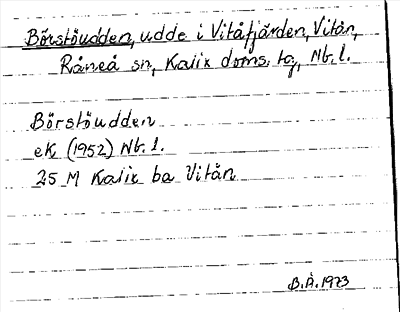 Börstöudden, udde i Vitåfjärden, Vitån,
Råneå sn, Kalix doms. tg, Nb. l.
Börstöudden
ek (1952) Nb. l.
25 M Kalix ba Vitån
B.Å. 1973